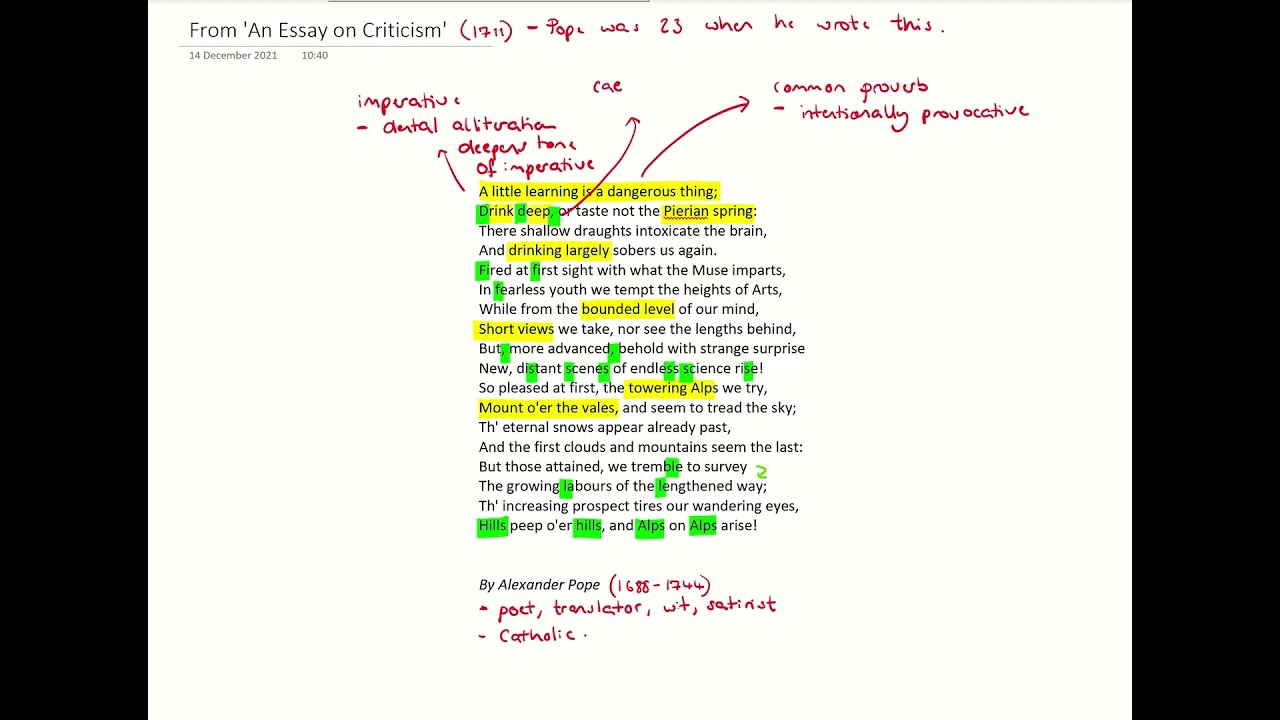 From 'An Essay on Criticism' (1711) - Pope was 23 when he wrote this.
14 December 2021 10:40
imperative
- dental alliteration
deepens tone
of imperative
cae
common proverb
- intentionally provocative
A little learning is a dangerous thing;
Drink deep, or taste not the Pierian spring:
There shallow draughts intoxicate the brain,
And drinking largely sobers us again.
Fired at first sight with what the Muse imparts,
In fearless youth we tempt the heights of Arts,
While from the bounded level of our mind,
Short views we take, nor see the lengths behind,
But, more advanced, behold with strange surprise
New, distant scenes of endless science rise!
So pleased at first, the towering Alps we try,
Mount o'er the vales, and seem to tread the sky;
Th' eternal snows appear already past,
And the first clouds and mountains seem the last:
But those attained, we tremble to survey
The growing labours of the lengthened way;
Th' increasing prospect tires our wandering eyes,
Hills peep o'er hills, and Alps on Alps arise!
By Alexander Pope (1688-1744)
- poet, translator, wit, satirist
- Catholic.